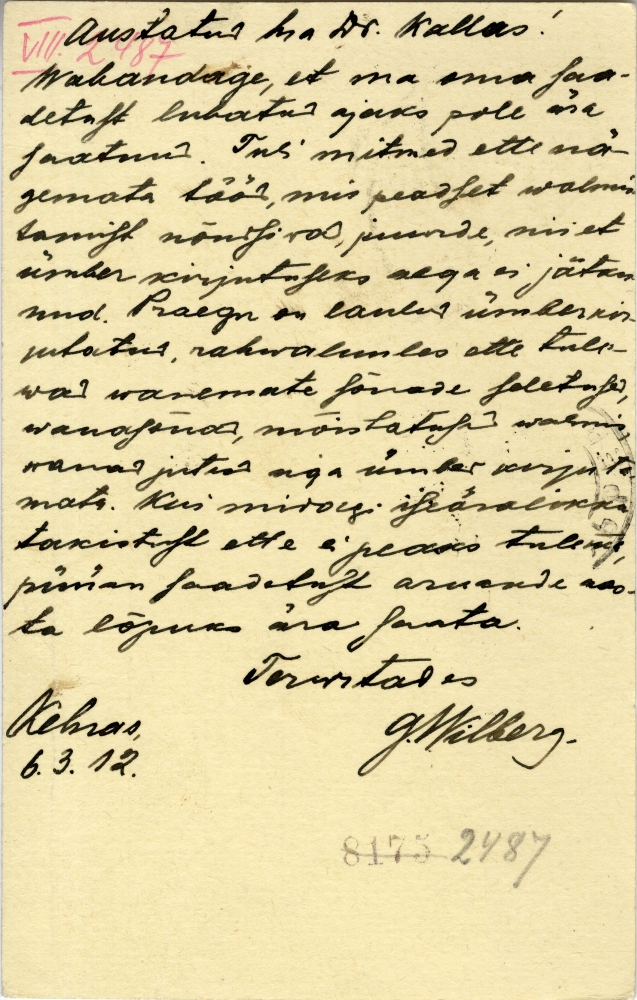 Austatud hra Dr. Kallas!
VIII. 2487
Wabandage, et ma oma saa-
detust lubatud ajaks pole ära
saatnud. Tuli mitmed ettenä-
gemata tööd, mis peadset walmis
tamist nõudsiwad, juurde, nii et
ümber kirjutuseks aega ei jätku-
nud. Praegu on laulud ümberkir-
jutatud, rahwalunles ette tule-
wad wanemate sõnade seletused,
wanasõnad, mõistatused walmis
wanad jutud aga ümber kirjuta
mata. Kui midagi iseäralikku
takistust ette ei peaks tulema,
püüan saadetust aruande aas-
ta lõpuks ära saata.
Terwitades
G. Wilberg.
Kehras,
6.3.12.
8175 2487